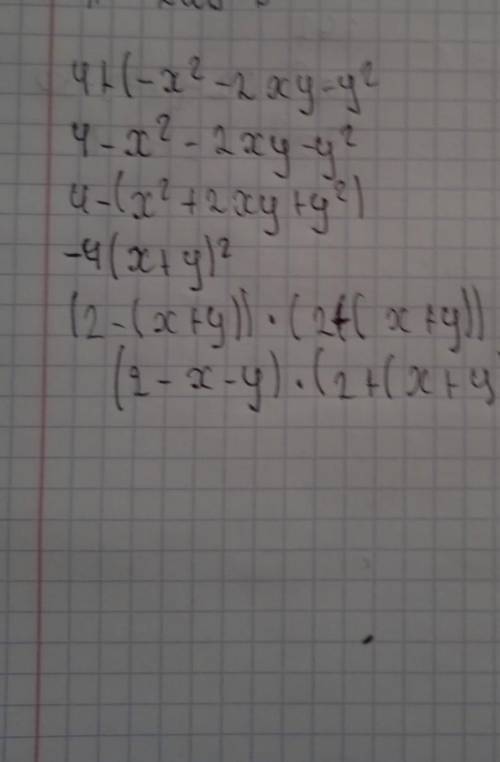 4+(-x²-2xy-y²
4-x²-2xy-y²
4-(x²+2xy+y²)
-4(x+y)²
(2-(x+y))·(2+(x+y))
(2-x-y)·(2+(x+y